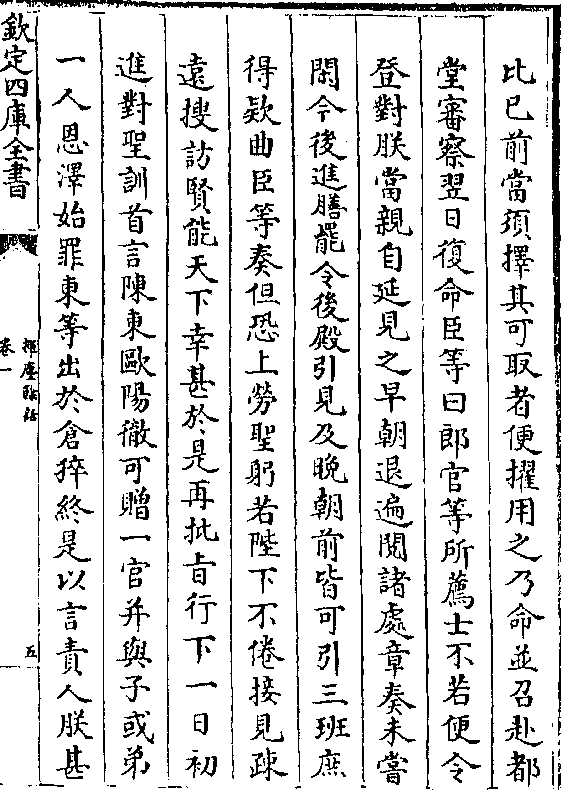 比已前當須擇其可取者便擢用之乃命並召赴都
堂審察翌日復命臣等曰郎官等所薦士不若便令
登對朕當親自延見之早朝退遍閱諸處章奏未嘗
閑今後進膳罷令後殿引見及晩朝前皆可引三班庶
得欵曲臣等奏但恐上勞聖躬若陛下不倦接見疎
遠搜訪賢能天下幸甚於是再批旨行下一日初
進對聖訓首言陳東歐陽徹可贈一官并與子或弟
一人恩澤始罪東等出於倉猝終是以言責人朕甚
欽定四庫全書
揮麈餘話
卷一
五